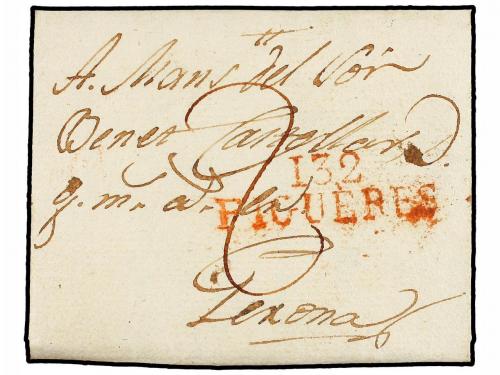 A. Mans del Sór
Benet Catellar D.
q. m. a. d.
132
FIGUÈRES
2
Gerona